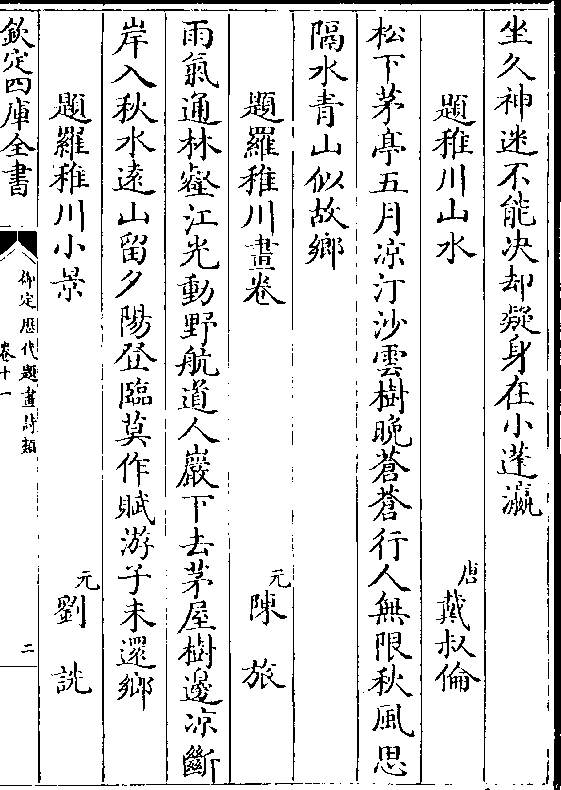 坐久神迷不能決却疑身在小蓬瀛
題稚川山水
唐戴叔倫
松下茅亭五月凉汀沙雲樹晚蒼蒼行人無限秋風思
隔水青山似故鄉
題羅稚川畫卷
元陳旅
雨氣通林壑江光動野航道人巖下去茅屋樹邊凉斷
岸入秋水遠山留夕陽登臨莫作賦游子未還鄉
題羅稚川小景
元劉詵
欽定四庫全書
御定歴代題畫詩類
卷十一
二